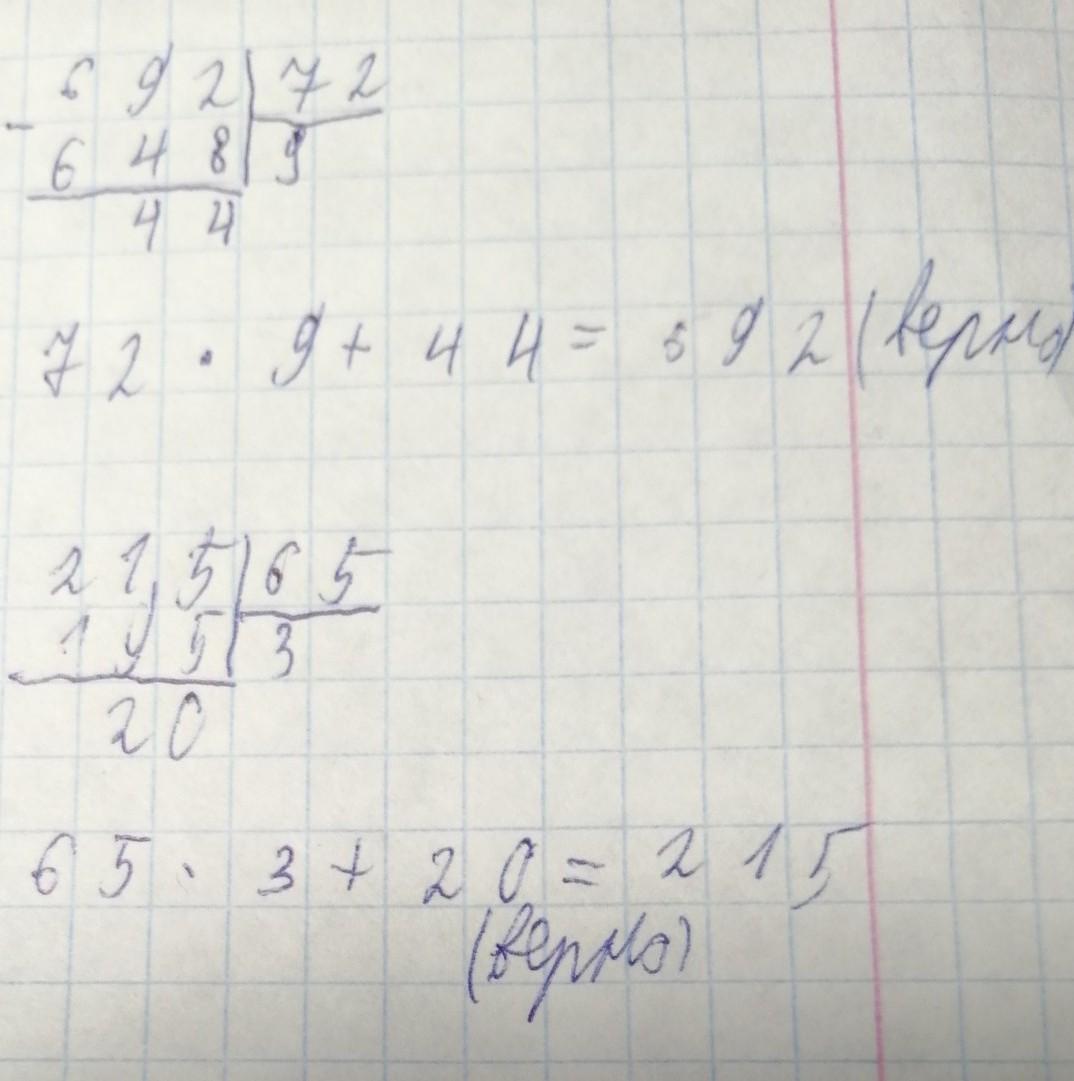 692|72
- 648|9
44
72 · 9 + 44 = 692 (верно)
215|65
195|3
20
65 · 3 + 20 = 215
(верно)